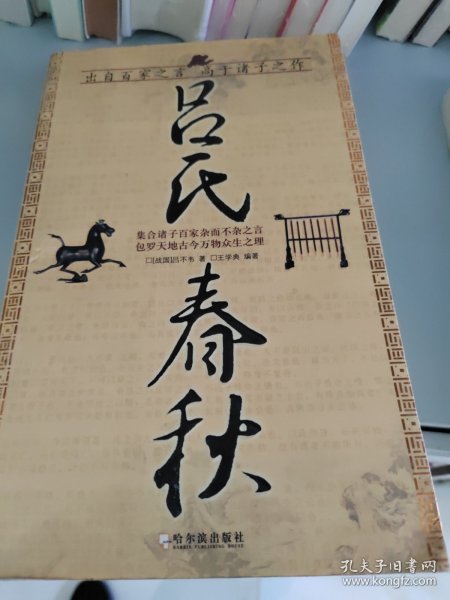 出自百家之言 高于诸子之作
吕氏
集合诸子百家杂而不杂之言
包罗天地古今万物众生之理
□[战国]吕不韦 著 □王学典 编著
春秋
哈尔滨出版社
HARBIN PUBLISHING HOUSE
孔夫子旧书网
www.kongfz.com